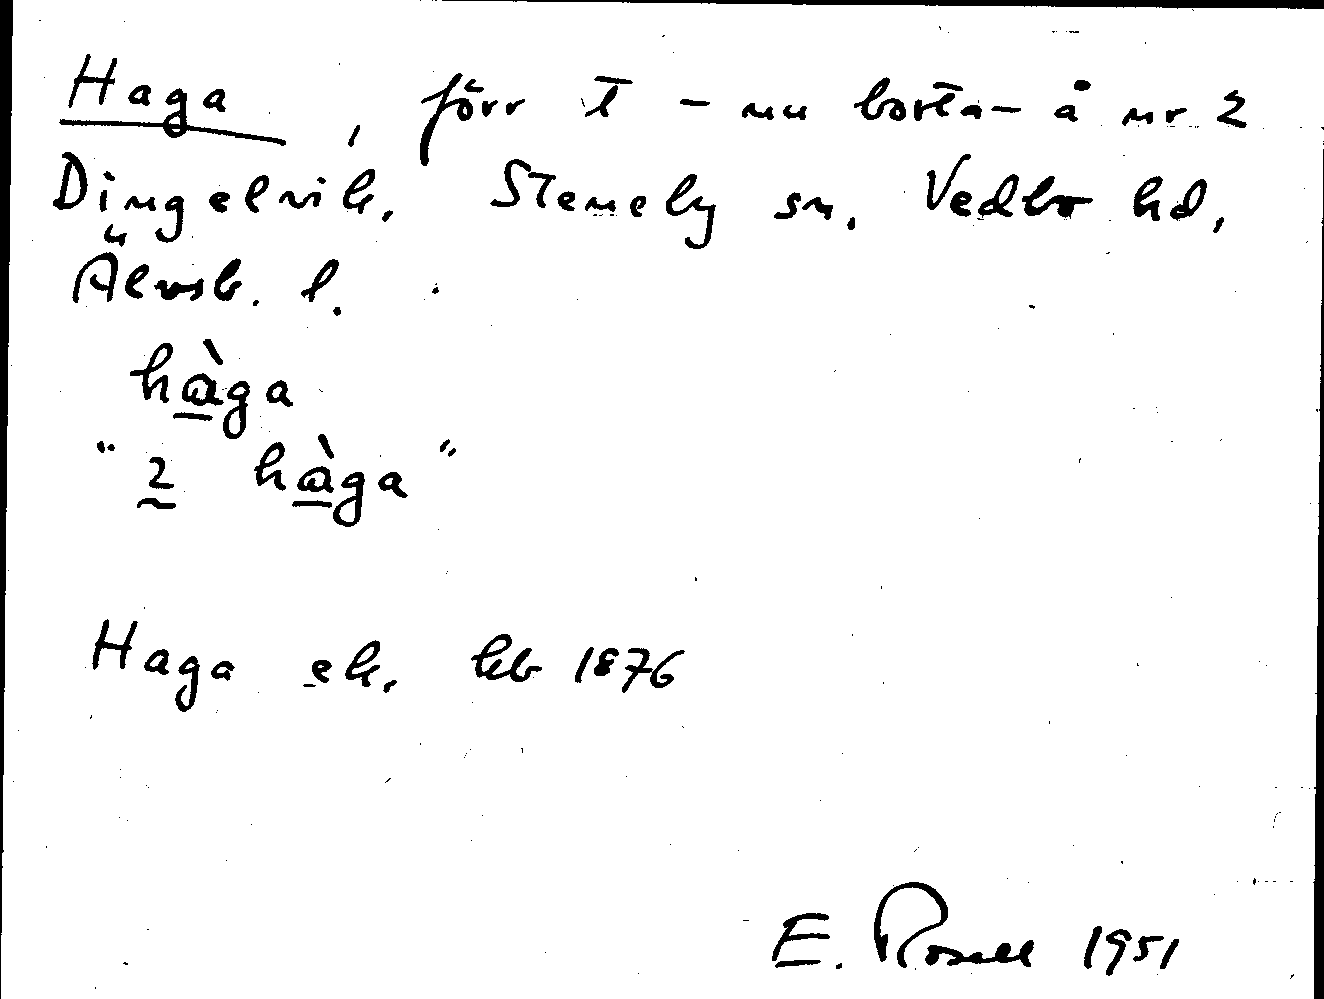 Haga, förr t - nu borta - å nr 2
Dingelvik, Steneby sn, Vedbo hd,
Älvsb. l.
hà̱ga
"2̰ hà̱ga"
Haga ek. kb 1876
E. Rosell 1951